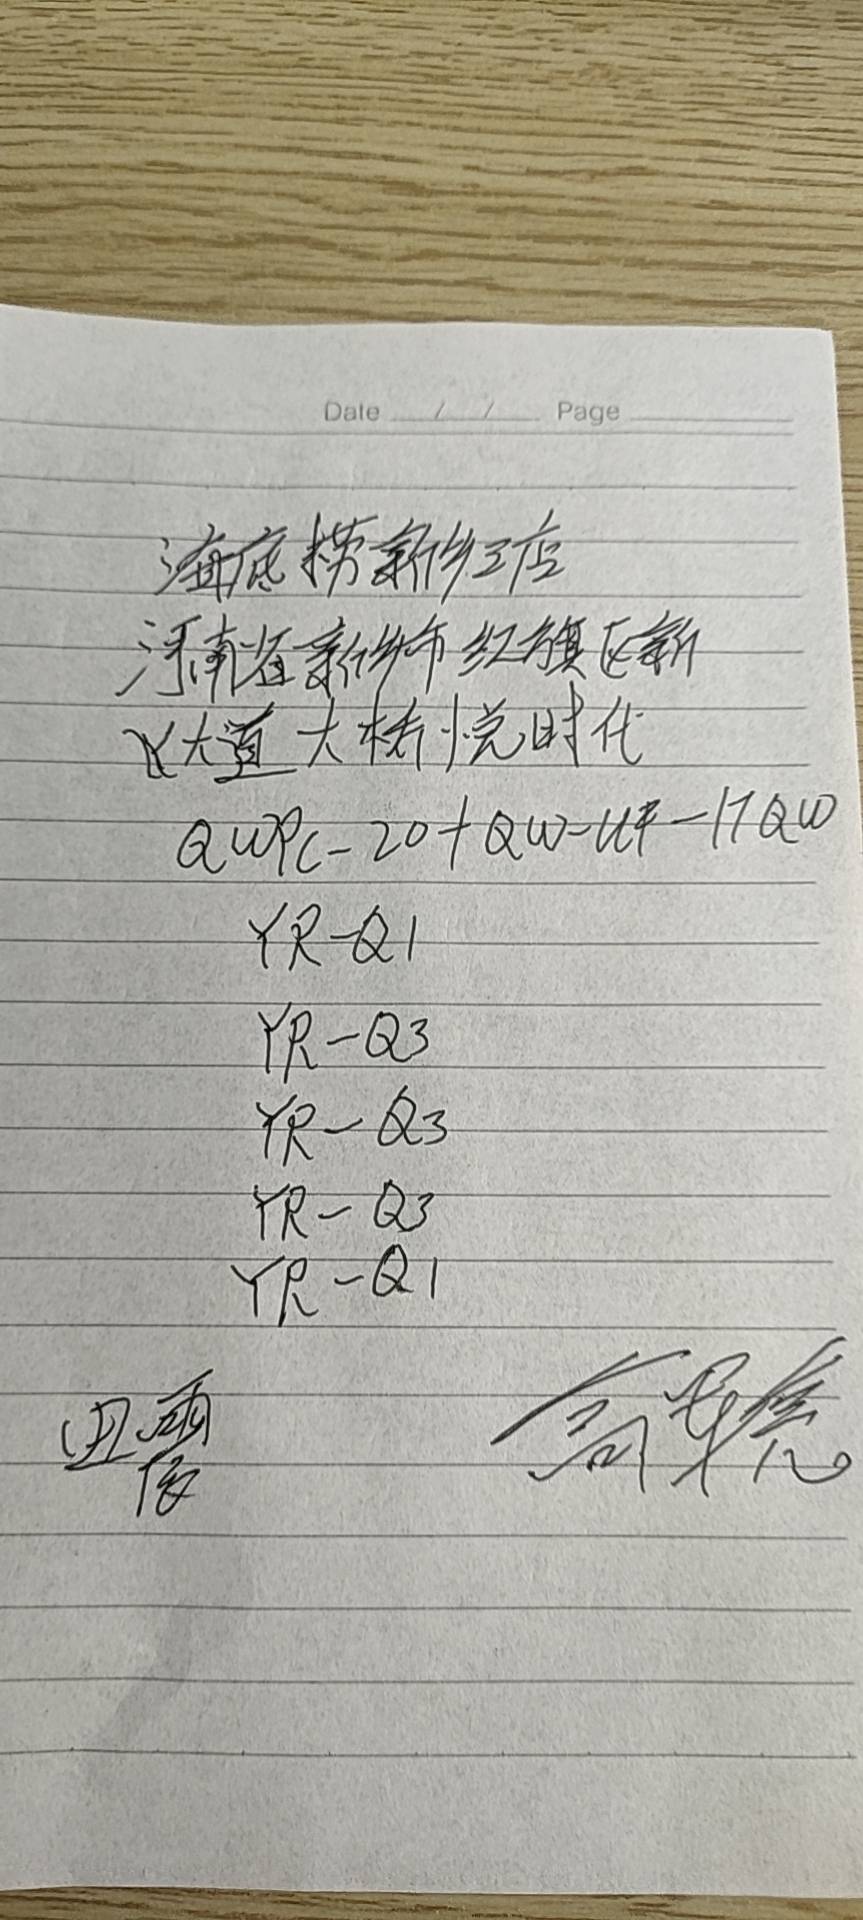 Date / / Page
海底捞新乡三店
河南省新乡市红旗区新
飞大道大桥悦时代
QWPC-20+QW-UF-17QW
YR-Q1
YR-Q3
YR-Q3
YR-Q3
YR-Q1